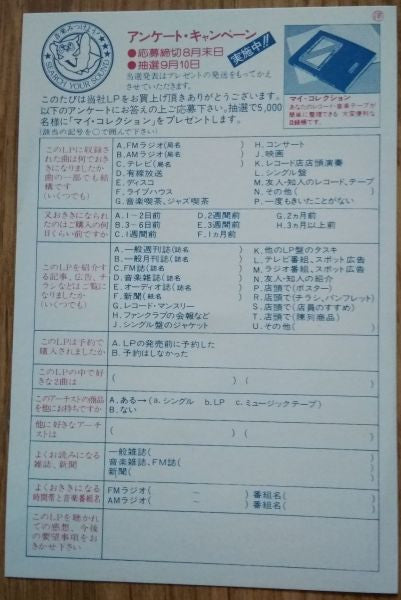 音楽みつけよう
SEARCH YOUR SOUND
アンケート・キャンペーン
●応募締切8月末日
●抽選9月10日
実施中!!
当選発表はプレゼントの発送をもってかえ
させていただきます。
このたびは当社LPをお買上げ頂きありがとうございます。
以下のアンケートにお答えの上ご応募下さい。抽選で5,000
名様に「マイ・コレクション」をプレゼントします。
(該当の記号を○で囲んで下さい)
マイ・コレクション
あなたのレコード・音楽テープが
簡単に整理できる 大変便利な
目録帳です。
このLPに収録さ
れた曲は何でおき
きになりましたか
曲の一部でも結
構です
(いくつでも)
A.FMラジオ(局名
B.AMラジオ(局名
C.テレビ(局名 )
D.有線放送
E.ディスコ
F.ライブハウス
G.音楽喫茶、ジャズ喫茶
H.コンサート
J.映画
K.レコード店店頭演奏
L.シングル盤
M.友人・知人のレコード、テープ
N.その他( )
P.一度もきいたことがない
又おききになられ
たのはご購入の何
日くらい前ですか
A.1-2日前
B.3-6日前
C.1週間前
D.2週間前
E.3週間前
F.1ヵ月前
G.2ヵ月前
H.3ヵ月以上前
このLPを紹介す
る記事、広告、チ
ラシなどはご覧に
なりましたか
(いくつでも)
A.一般週刊誌(誌名
B.一般月刊誌(誌名
C.FM誌(誌名 )
D.音楽雑誌(誌名
E.オーディオ誌(誌名
F.新聞(紙名 )
G.レコード・マンスリー
H.ファンクラブの会報など
J.シングル盤のジャケット
K.他のLP盤のタスキ
L.テレビ番組、スポット広告
M.ラジオ番組、スポット広告
N.友人・知人の紹介
P.店頭で(ポスター)
R.店頭で(チラシ、パンフレット)
S.店頭で(店員のすすめ)
T.店頭で(陳列商品)
U.その他( )
このLPは予約で
購入されましたか
A.LPの発売前に予約した
B.予約はしなかった
このLPの中で好
きな2曲は
( ) ( )
このアーチストの商品
を他にお持ちですか
A.ある→(a.シングル b.LP c.ミュージックテープ)
B.ない
他に好きなアーチ
ストは
( ) ( )
よくお読みになる
雑誌、新聞
一般雑誌( )
音楽雑誌、FM誌( )
新聞( )
よくおききになる
時間帯と音楽番組名
FMラジオ( ～ )番組名( )
AMラジオ( ～ )番組名( )
このLPを聴かれ
ての感想、今後
の要望事項をお
きかせ下さい